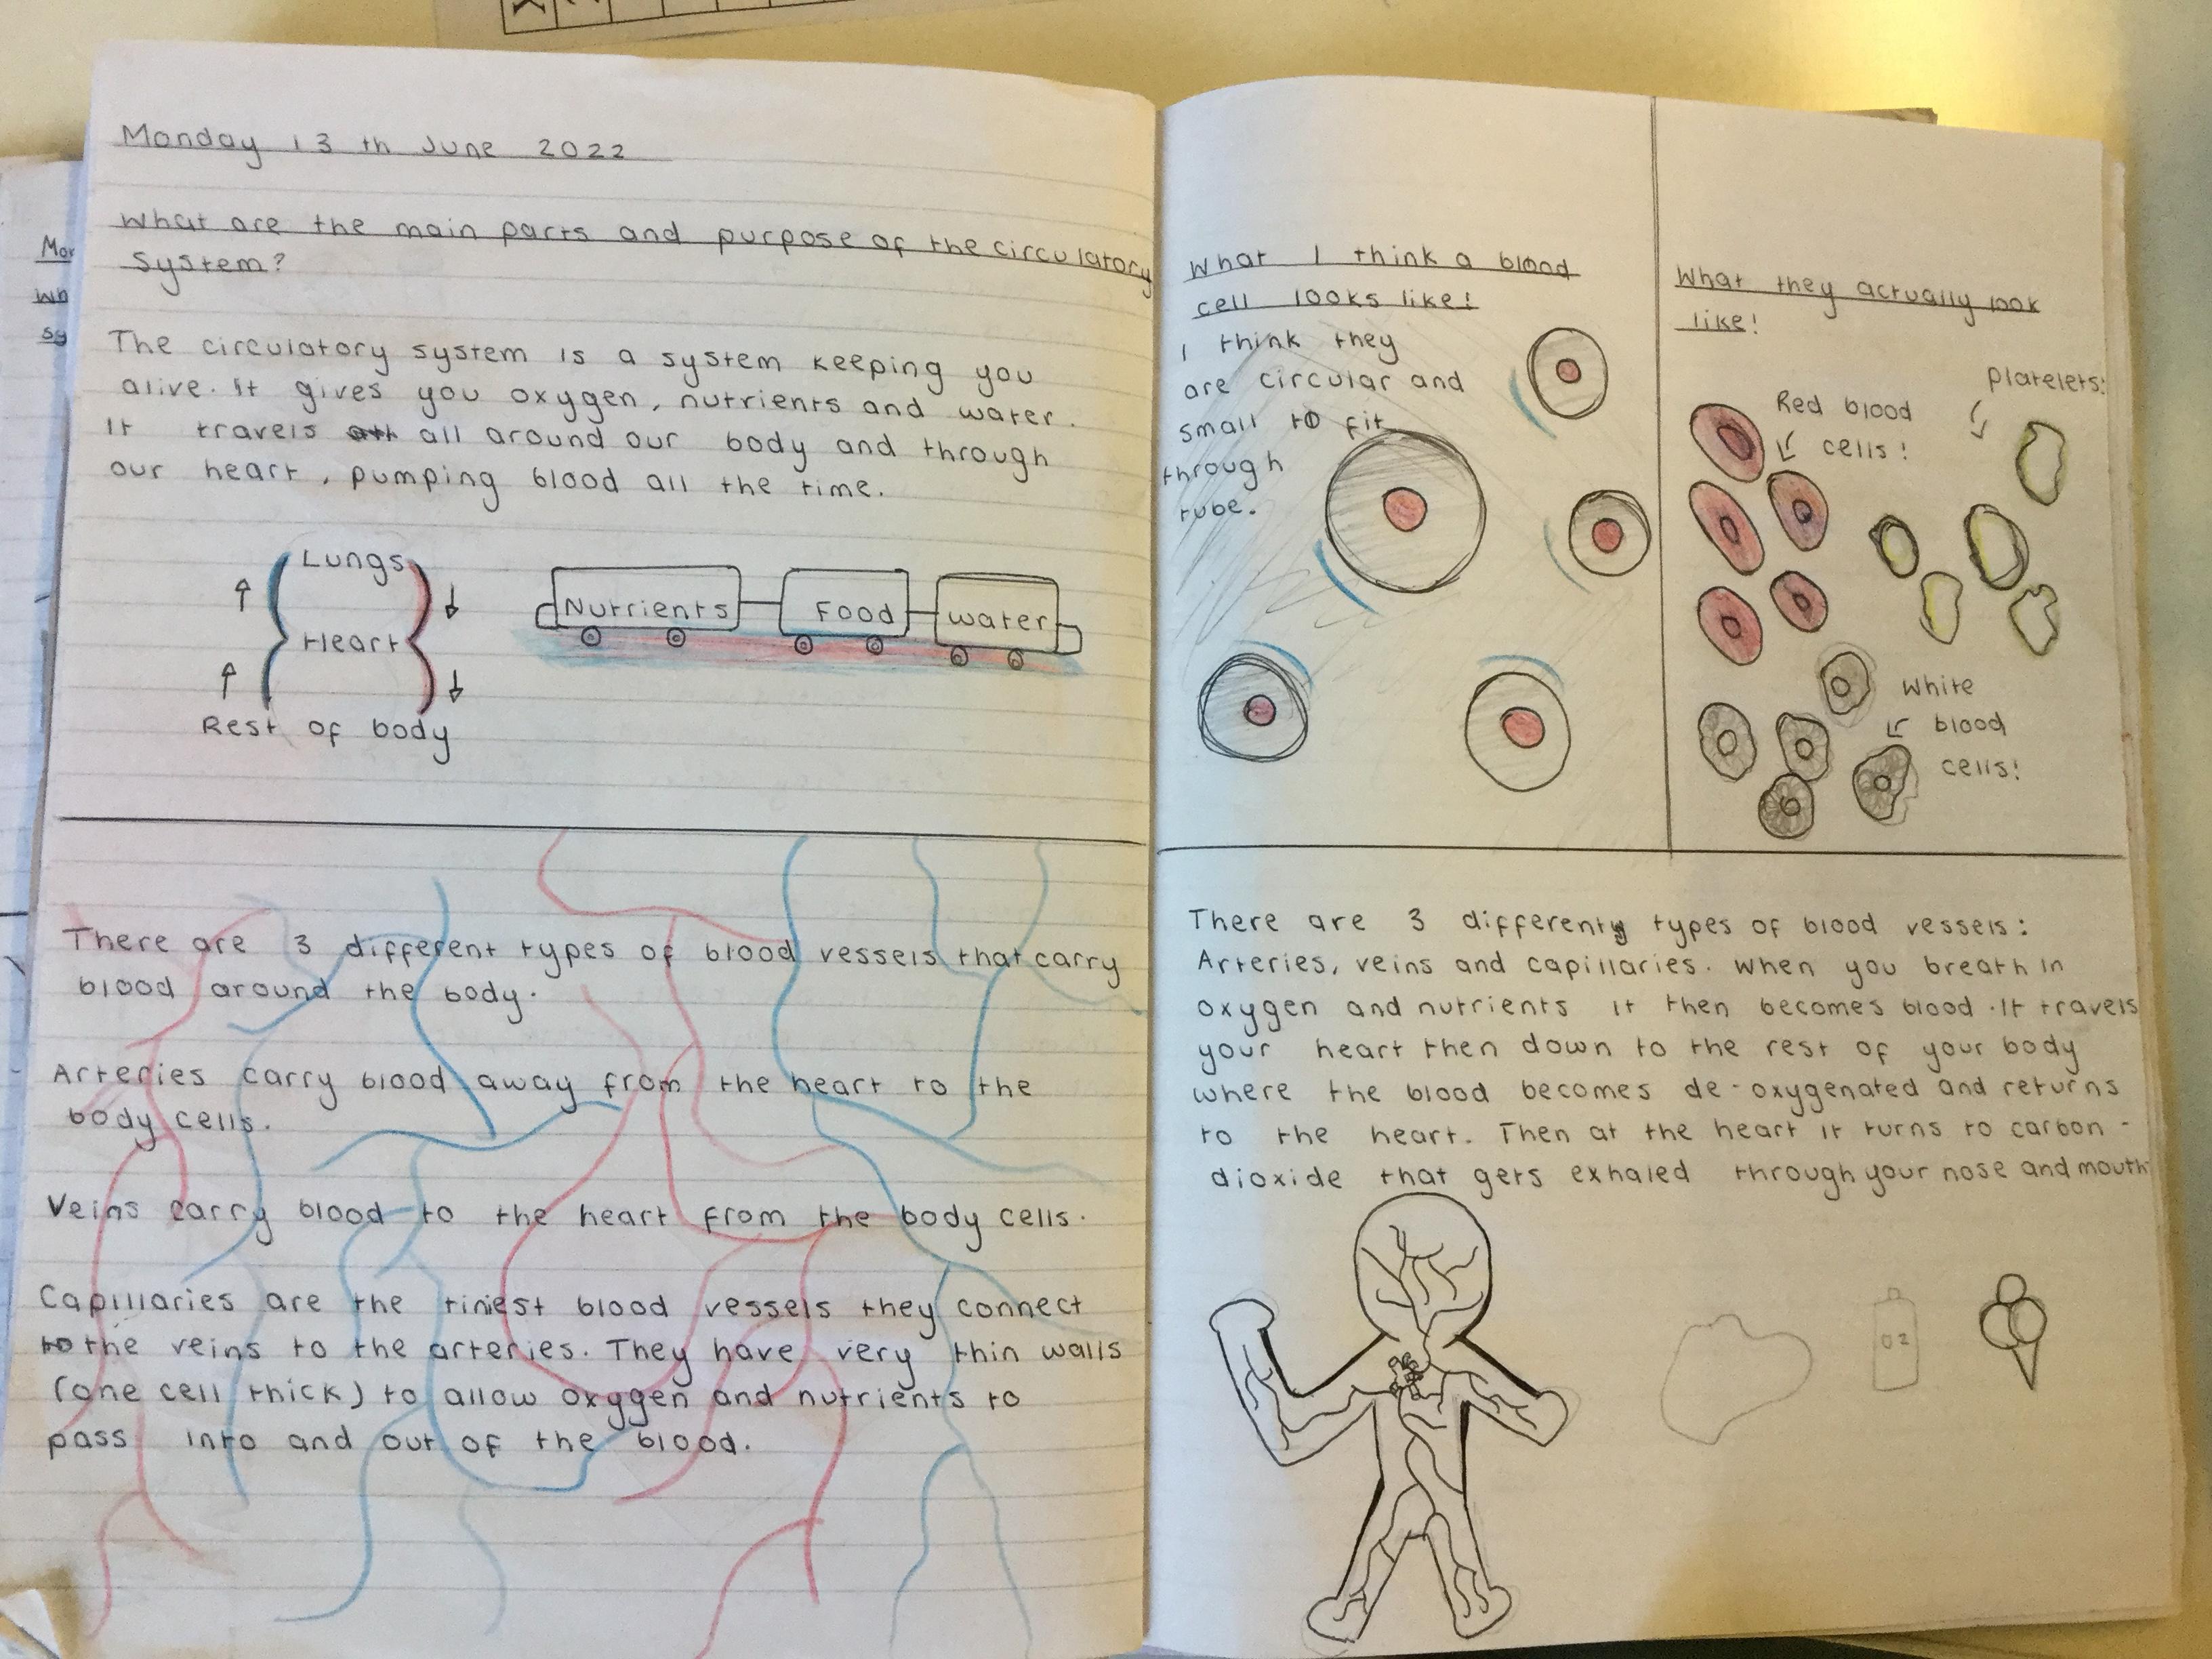 Monday 13th June 2022
What are the main parts and purpose of the circulatory
system?
The circulatory system is a system keeping you
alive. It gives you oxygen, nutrients and water.
It travels all around our body and through
our heart, pumping blood all the time.
Lungs
Heart
Rest of body
Nutrients Food water
There are 3 different types of blood vessels that carry
blood around the body.
Arteries carry blood away from the heart to the
body cells.
Veins carry blood to the heart from the body cells.
Capillaries are the tiniest blood vessels they connect
to the veins to the arteries. They have very thin walls
(one cell thick) to allow oxygen and nutrients to
pass into and out of the blood.
What I think a blood
cell looks like!
I think they
are circular and
small to fit
through
tube.
What they actually look
like!
Platelets:
Red blood
cells!
White
blood
cells!
There are 3 differenty types of blood vessels:
Arteries, veins and capillaries. When you breath in
oxygen and nutrients it then becomes blood. It travels
your heart then down to the rest of your body
where the blood becomes de-oxygenated and returns
to the heart. Then at the heart it turns to carbon-
dioxide that gets exhaled through your nose and mouth
O2
Mon
wh
sy